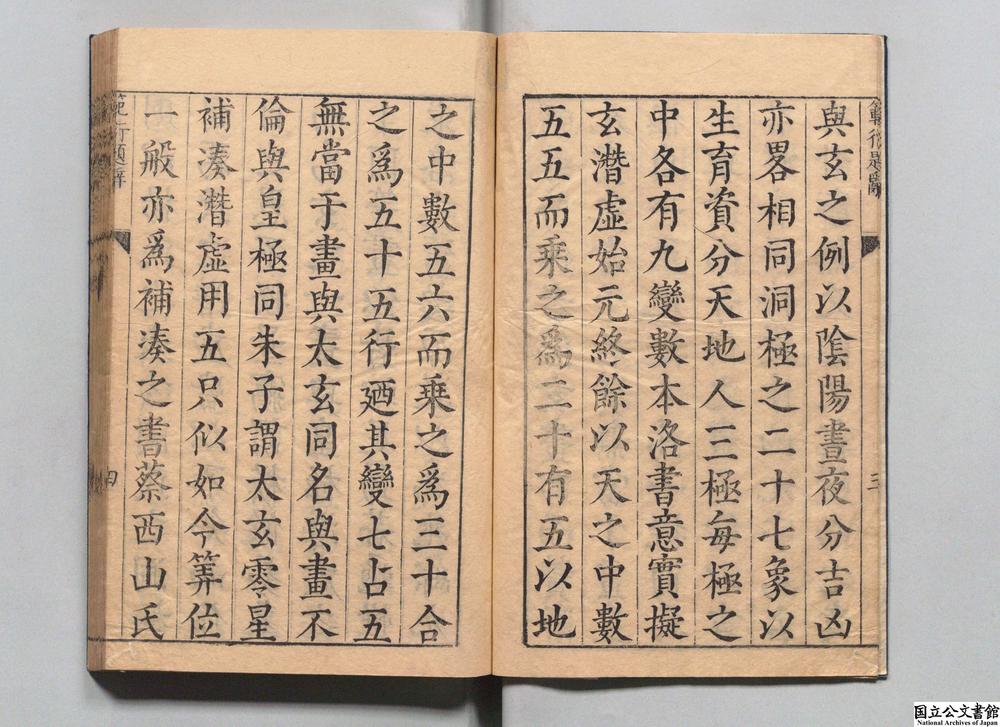 與玄之例以陰陽晝夜分吉凶
亦畧相同洞極之二十七象以
生育資分天地人三極每極之
中各有九變數本洛書意實擬
玄潛虛始元終餘以天之中數
五五而乘之爲二十有五以地
三
之中數五六而乘之爲三十合
之爲五十五行廼其變七占五
無當于畫與太玄同名與畫不
倫與皇極同朱子謂太玄零星
補湊潛虛用五只似如今筭位
一般亦爲補湊之書蔡西山氏
範衍題辭
四
国立公文書館
National Archives of Japan